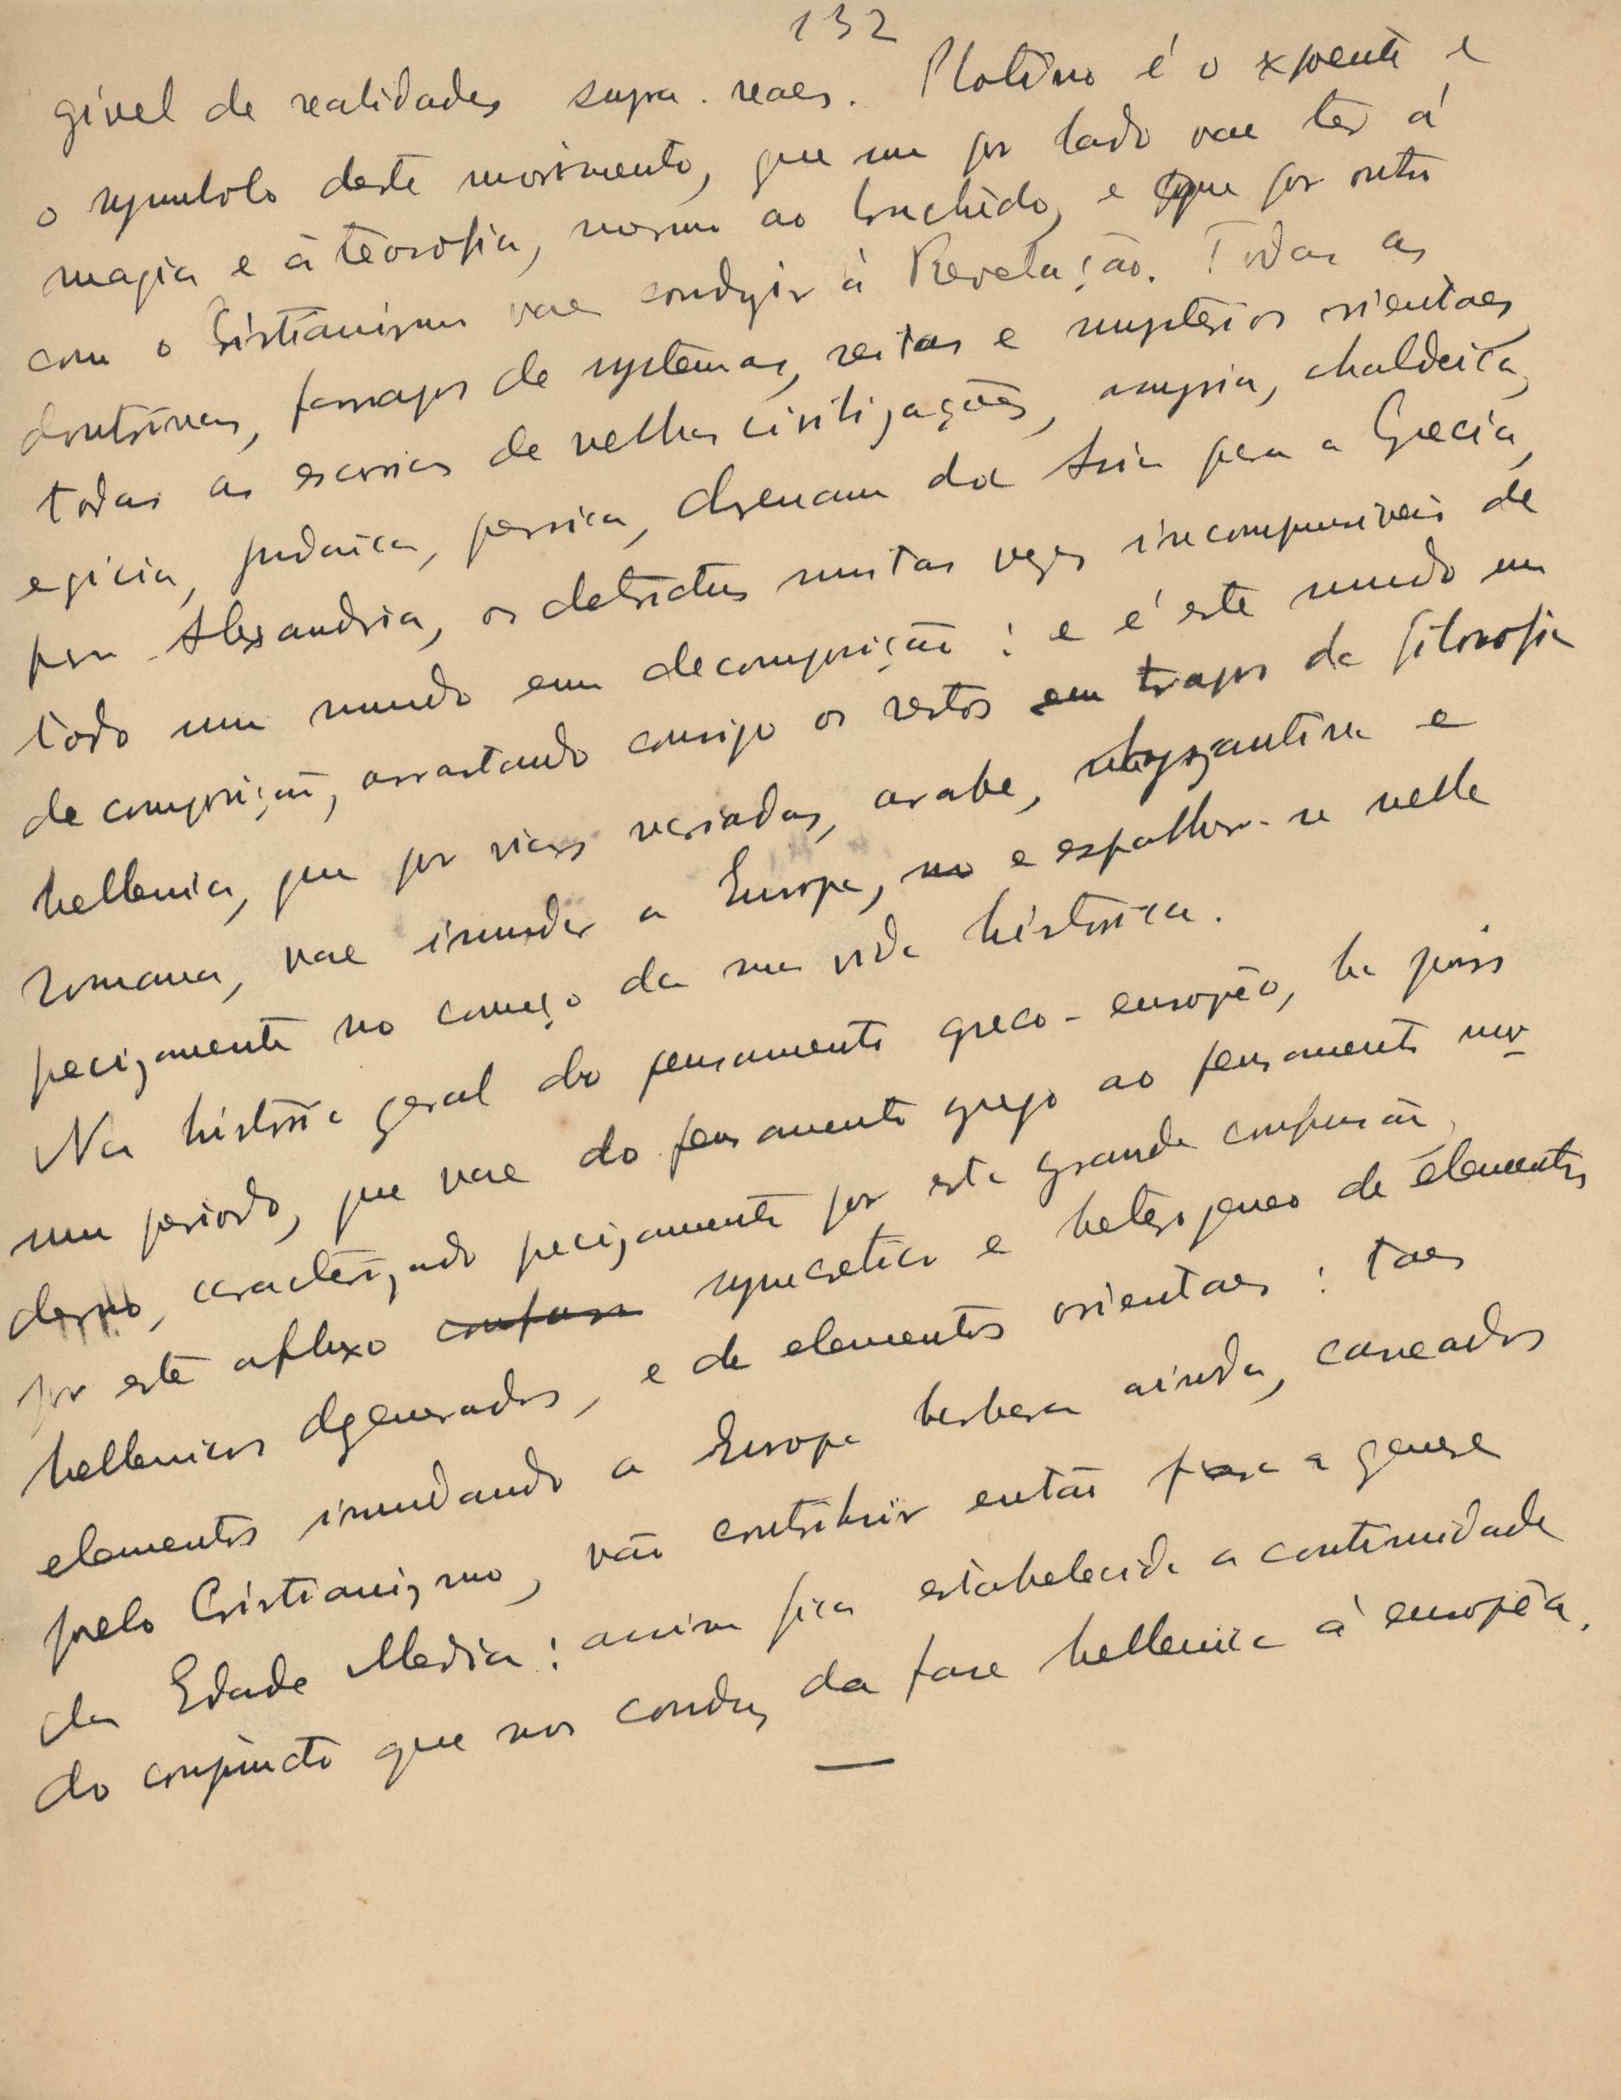 132
givel de realidades supra-reaes. Plotino é o expoente e
o symbolo deste movimento, que se por lado vae ter á
magia e á teosofia, mesmo ao bruchedo, e que por outro
com o Cristianismo vae conduzir á Revelação. Todas as
doutrinas, farrapos de systemas, seitas e mysterios orientaes,
todas as escorias de velhas civilizações, assyria, chaldeica,
egicia, judaica, persica, drenam da Asia para a Grecia,
para Alexandria, os detrictus muitas vezes incompreensiveis de
todo um mundo em decomposição: e é este mundo em
decomposição, arrastando consigo os restos em trapos da filosofia
hellenica, que por vias variadas, arabe, byzantina e
romana, vae inundar a Europa, e espalhar-se nella
precizamente no começo da sua vida historica.
Na historia geral do pensamento greco-europêo, ha pois
um periodo, que vae do pensamento grego ao pensamento mo-
derno, caracterizado precizamente por esta grande confusão,
por este afluxo confuso syncretico e heterogeneo de elementos
hellenicos degenerados, e de elementos orientaes: taes
elementos inundando a Europa barbara ainda, caneados
pelo Cristianizmo, vão contribuir então para a genese
da Edade Media: assim fica estabelecida a continuidade
do conjuncto que nos conduz da fase hellenica á europêa.